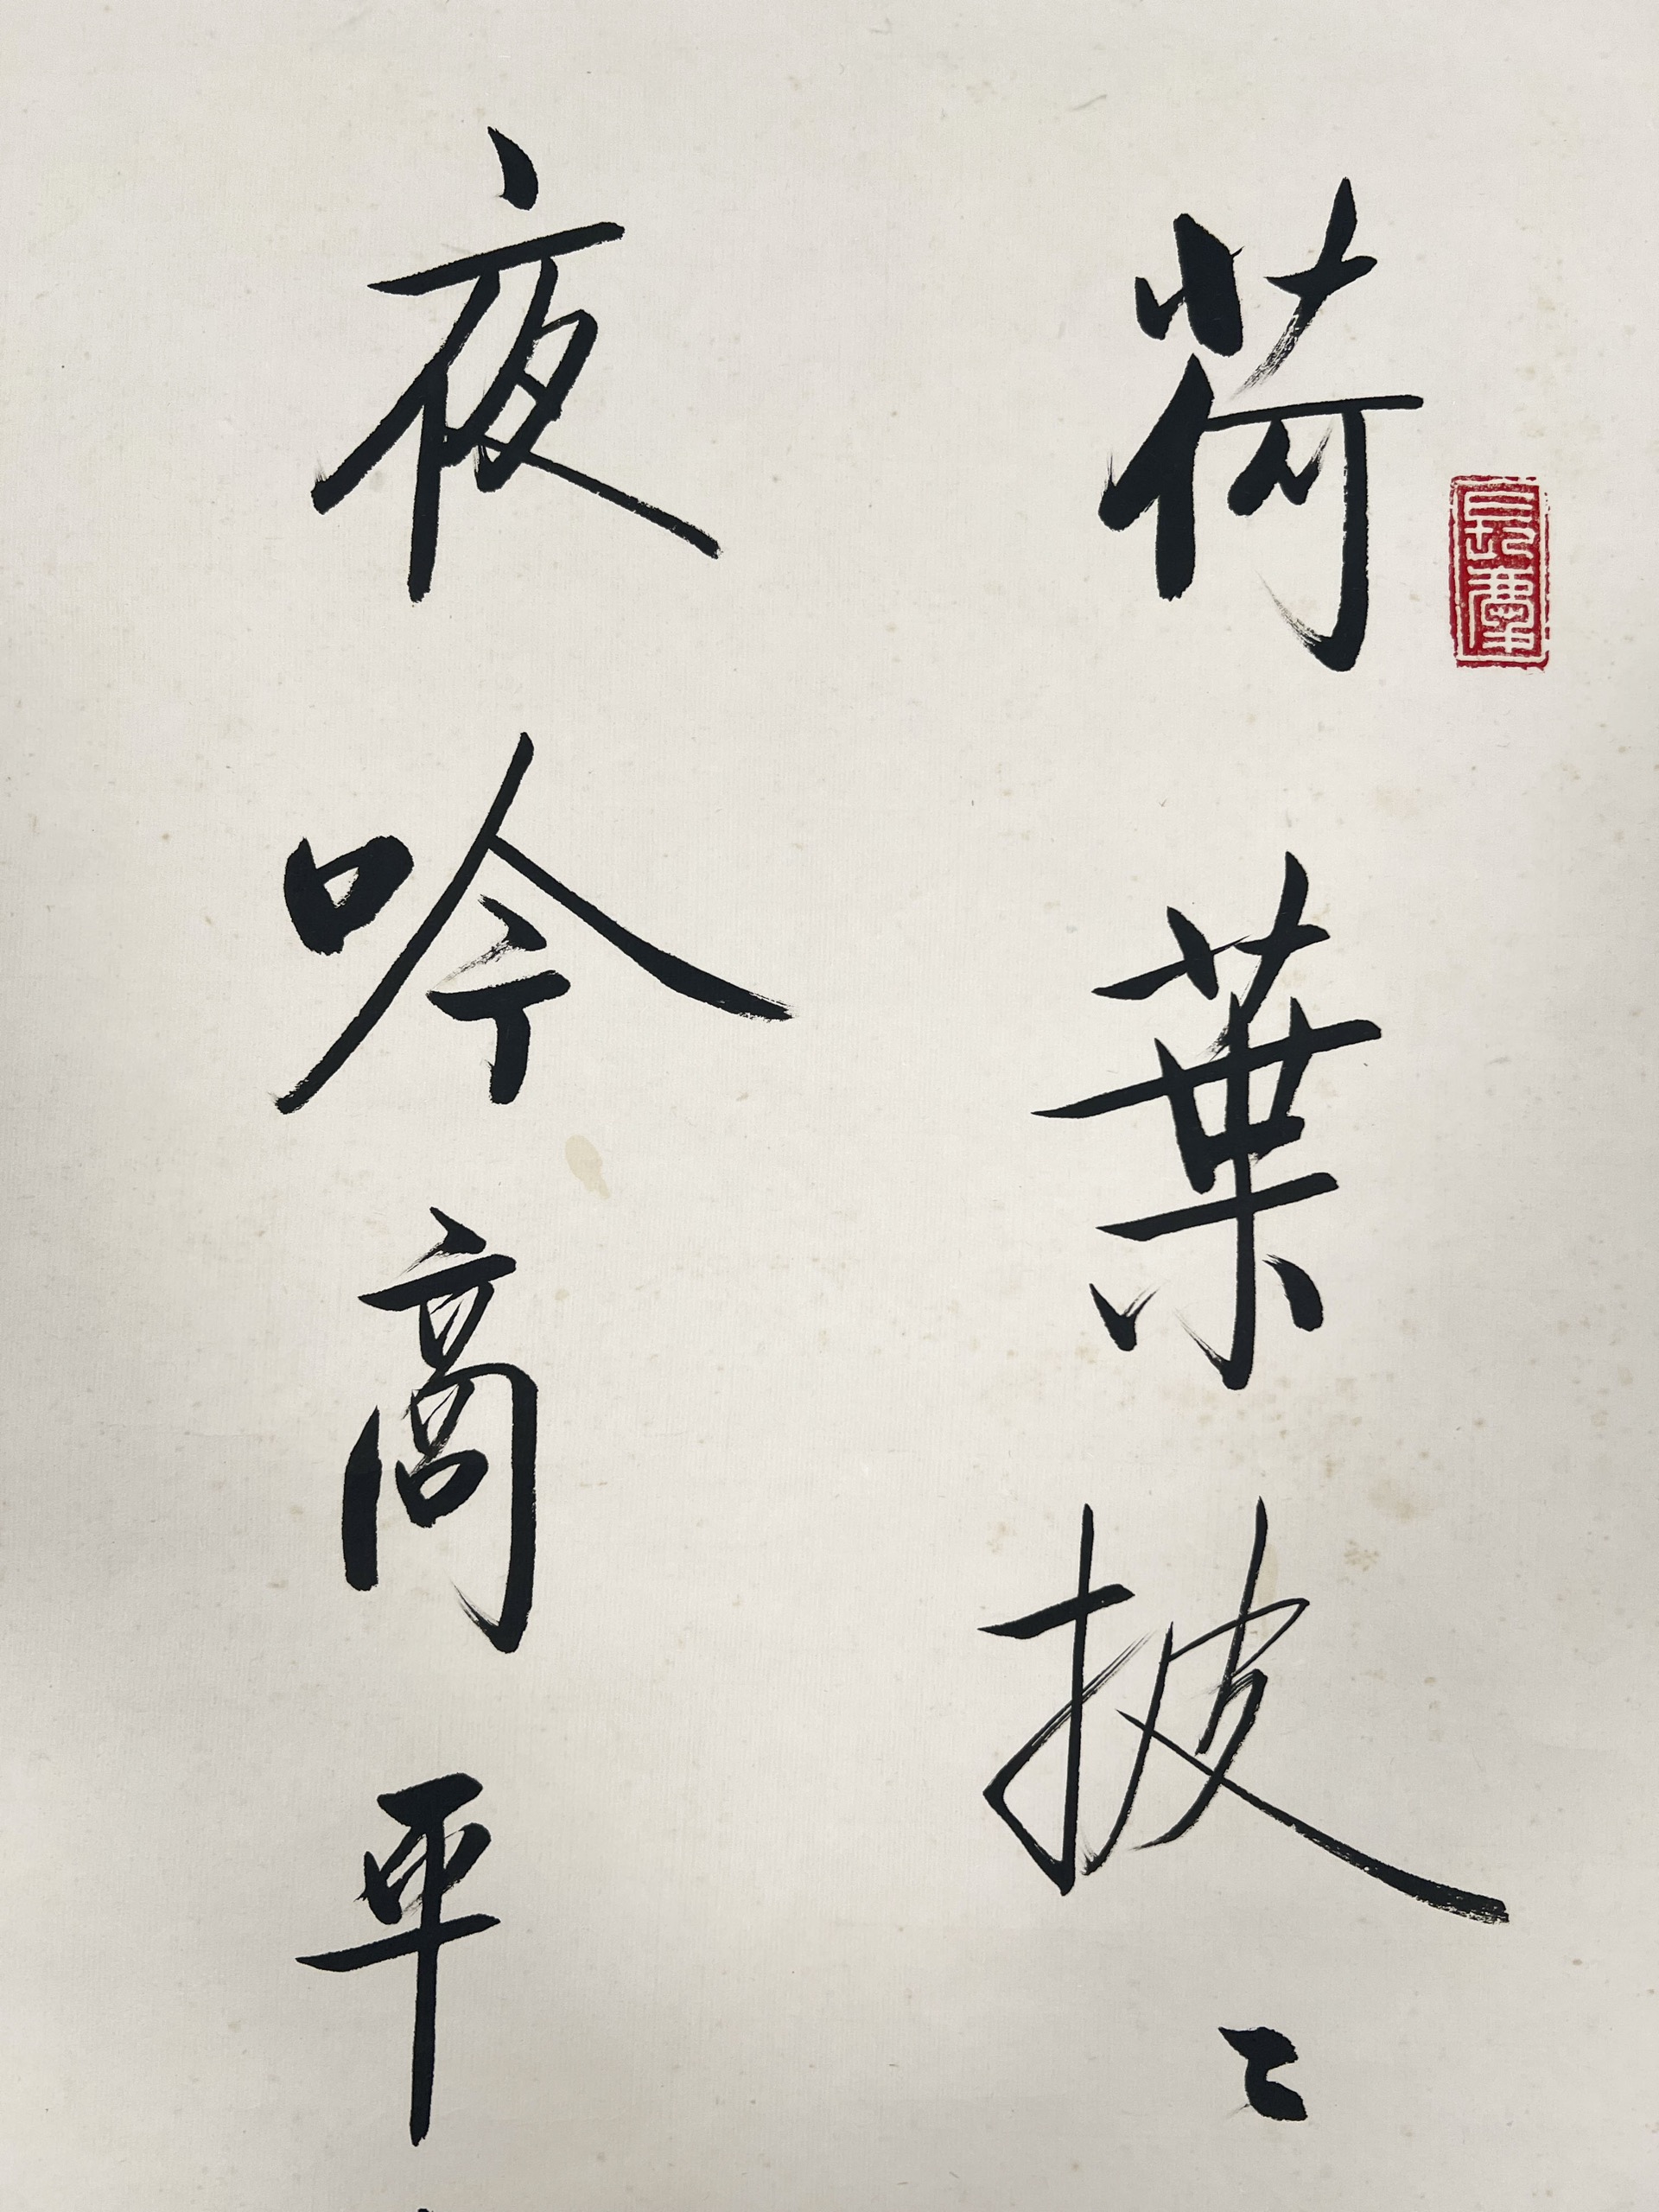 荷葉披〻
夜吟高平